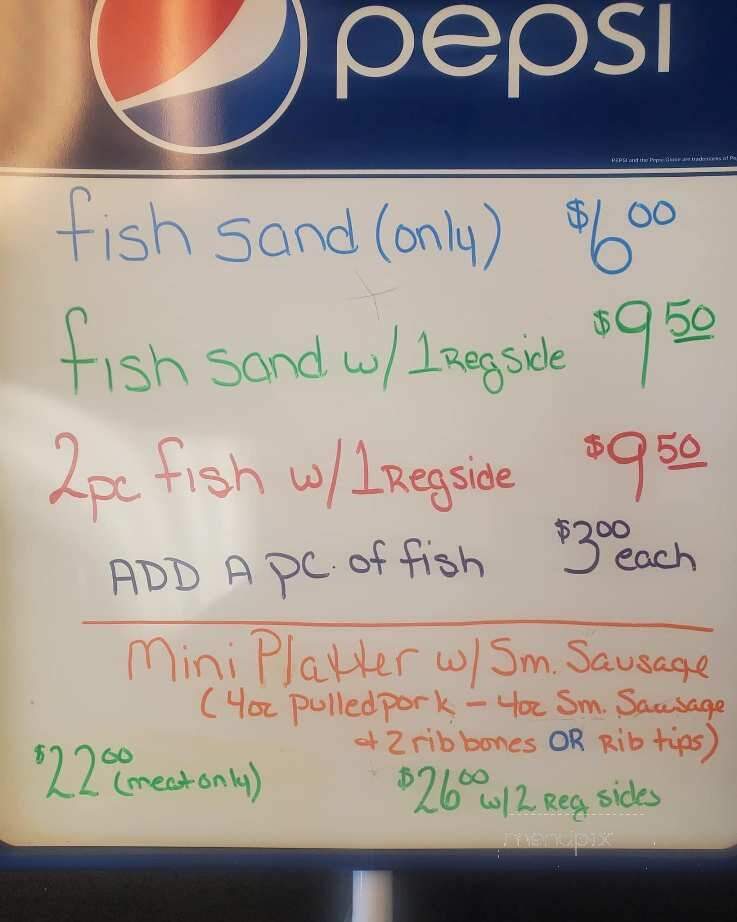 pepsi
PEPSI and the Pepsi Globe are trademarks of
fish sand (only) $6 00
fish sand w/ 1 Reg side $9 50
2pc fish w/ 1 Reg side $9 50
ADD A pc. of fish $3 00 each
Mini Platter w/ Sm. Sausage
(4oz pulled pork - 4oz Sm. Sausage
+ 2 rib bones OR Rib tips)
$22 00 (meat only) $26 00 w/ 2 Reg sides
menupix